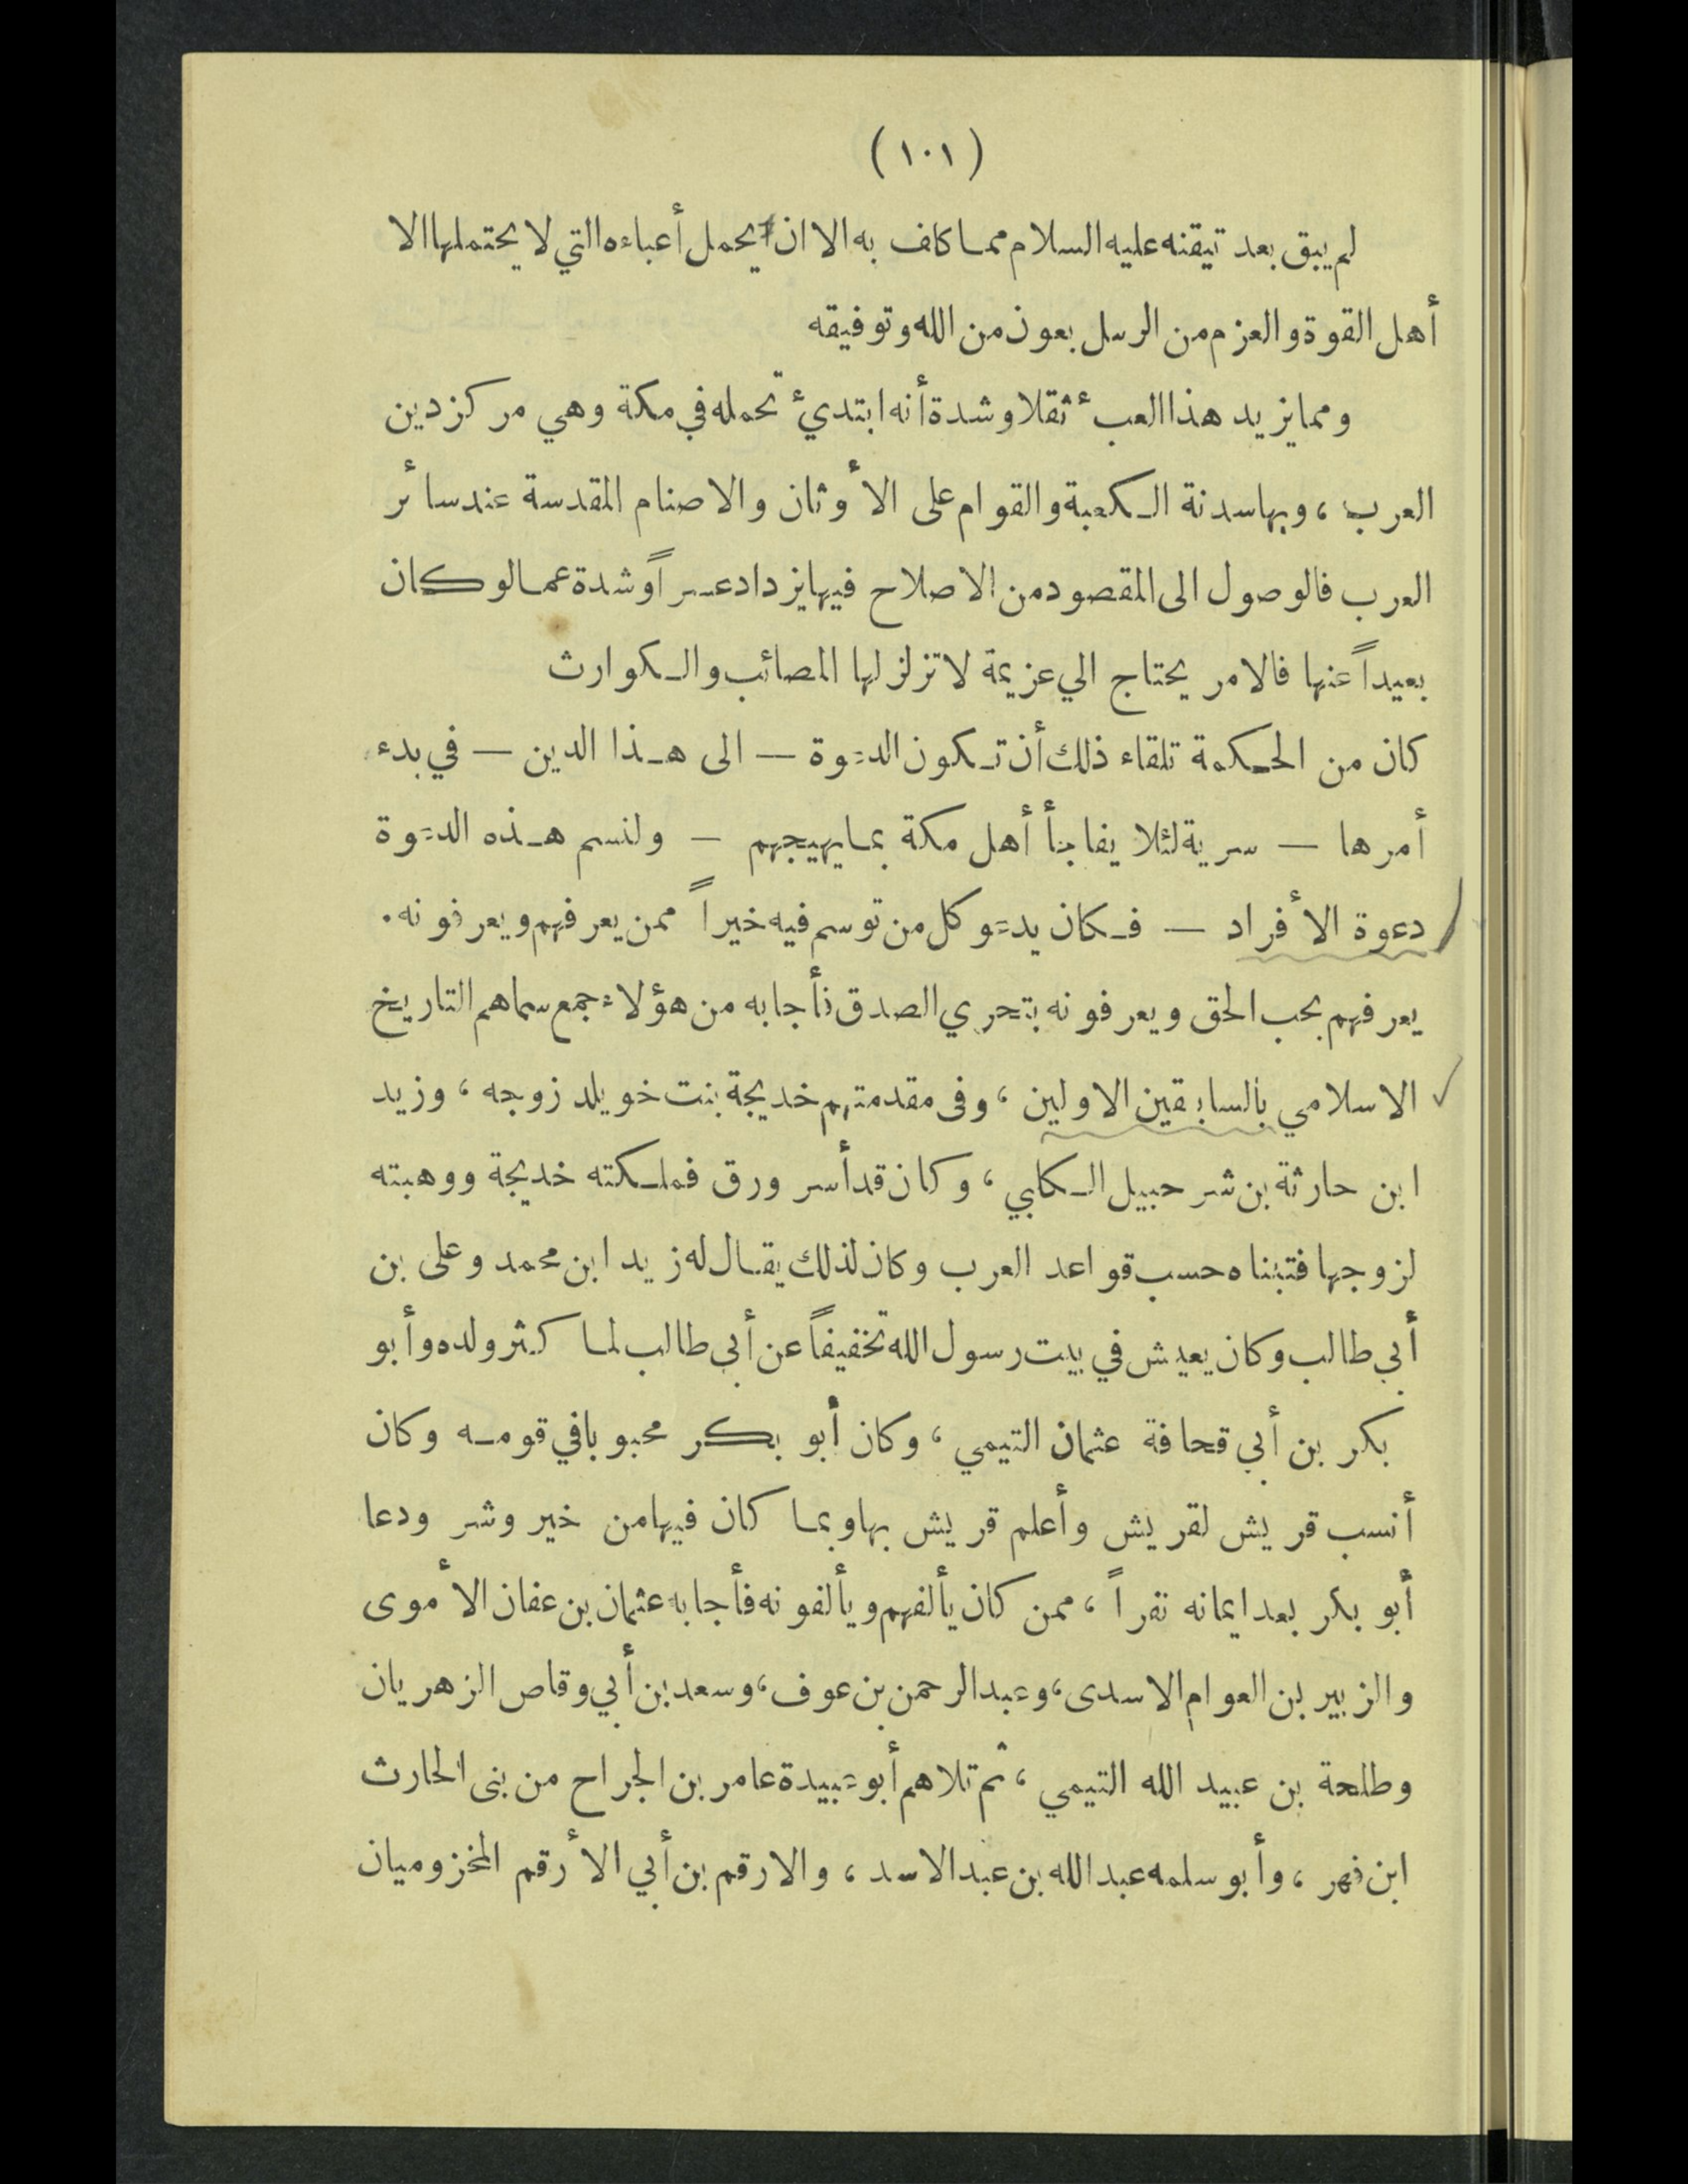 (١٠١)
لم يبق بعد تيقنه عليه السلام مما كاف به الا ان يحمل أعباءه التي لا يحتملها الا
أهل القوة والعزم من الرسل بعون من الله وتوفيقه
ومما يزيد هذا العبء ثقلا وشدة أنه ابتديء تحمله في مكة وهي مركز دين
العرب ، وبها سدنة الكعبة والقوام على الأوثان والاصنام المقدسة عند سائر
العرب فالوصول الى المقصود من الاصلاح فيها يزداد عسراً وشدة عما لو كان
بعيداً عنها فالامر يحتاج الي عزيمة لا تزلزلها المصائب والكوارث
كان من الحكمة تلقاء ذلك أن تكون الدعوة — الى هذا الدين — في بدء
أمرها — سرية لئلا يفاجأ أهل مكة بما يهيجهم — ولنسم هذه الدعوة
دعوة الأفراد — فكان يدعو كل من توسم فيه خيراً ممن يعرفهم ويعرفونه .
يعرفهم بحب الحق ويعرفونه بتحري الصدق فأجابه من هؤلاء جمع سماهم التاريخ
الاسلامي بالسابقين الاولين ، وفى مقدمتهم خديجة بنت خويلد زوجه ، وزيد
ابن حارثة بن شرحبيل الكلبي ، وكان قد أسر ورق فملكته خديجة ووهبته
لزوجها فتبناه حسب قواعد العرب وكان لذلك يقال له زيد ابن محمد وعلى بن
أبي طالب وكان يعيش في بيت رسول الله تخفيفاً عن أبي طالب لما كثر ولده وأبو
بكر بن أبي قحافة عثمان التيمي ، وكان أبو بكر محبوبا في قومه وكان
أنسب قريش لقريش وأعلم قريش بها وبما كان فيها من خير وشر ودعا
أبو بكر بعد ايمانه نفراً ، ممن كان يألفهم ويألفونه فأجابه عثمان بن عفان الأموى
والزبير بن العوام الاسدى ، وعبد الرحمن بن عوف ، وسعد بن أبي وقاص الزهريان
وطلحة بن عبيد الله التيمي ، ثم تلاهم أبو عبيدة عامر بن الجراح من بنى الحارث
ابن فهر ، وأبو سلمه عبد الله بن عبد الاسد ، والارقم بن أبي الأرقم المخزوميان